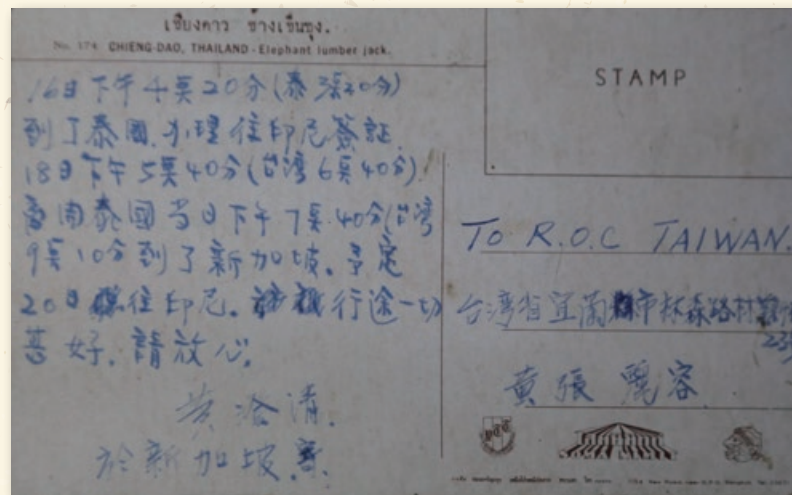 เชียงดาว ช้างเข็นซุง.
No. 174 CHIENG-DAO, THAILAND - Elephant lumber jack.
16日下午4莫20分(泰3莫20分)
到了泰國.办理往印尼簽証.
18日下午5莫40分(台湾6莫40分)
离開泰國当日下午7莫40分(台湾
9莫10分到了新加坡。予定
20日往印尼。行途一切
甚好.請放心.
黄 清.
於新加坡.寄
STAMP
To R.O.C TAIWAN.
台湾省宜蘭市林森路
黄張麗容